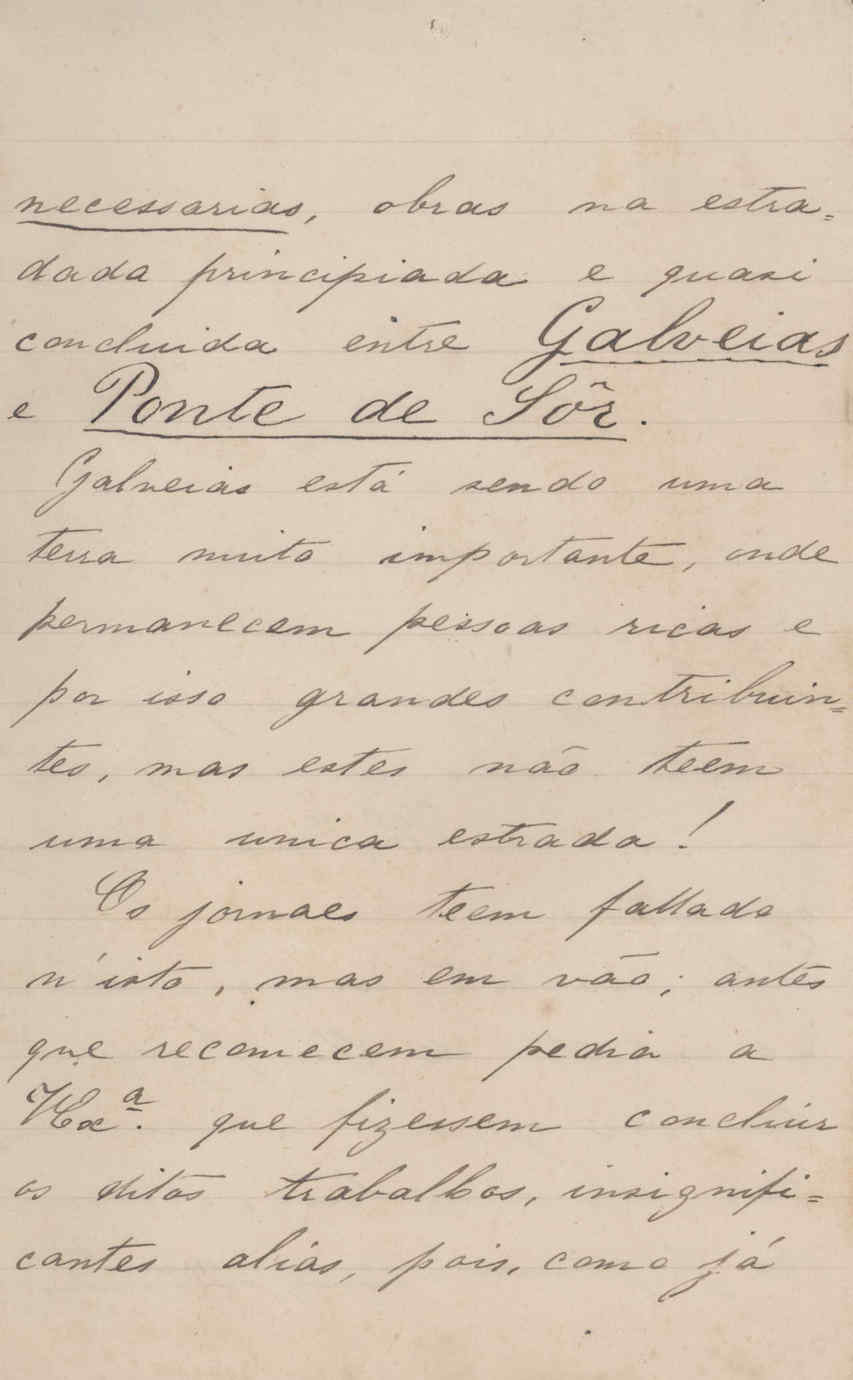 necessarias, obras na estra=
dada principiada e quasi
concluida entre Galveias
e Ponte de Sôr.
Galveias está sendo uma
terra muito importante, onde
permanecem pessoas ricas e
por isso grandes contribuin=
tes, mas estes não teem
uma unica estrada!
Os jornaes teem fallado
n'isto, mas em vão; antes
que recomecem pedia a
V.Exª. que fizessem concluir
os ditos trabalhos, insignifi=
cantes aliás, pois, como já